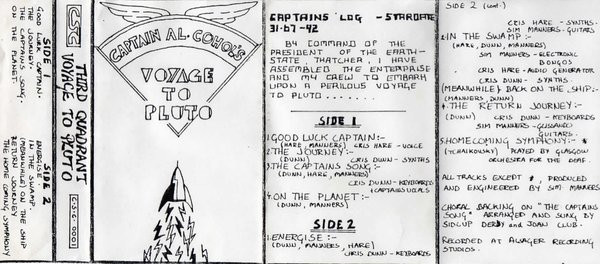 SIDE 1
GOOD LUCK CAPTAIN
THE JOURNEY
THE CAPTAINS SONG.
ON THE PLANET.
SIDE 2
ENERGISE
IN THE SWAMP.
(MEANWHILE) ON THE SHIP
RETURN JOURNEY
THE HOME COMING SYMPHONY
THIRD QUADRANT
VOYAGE TO PLUTO
C·S·G 0001
CAPTAIN AL. COHOL'S
VOYAGE
TO
PLUTO
CAPTAINS LOG - STARDATE
31-67-42
BY COMMAND OF THE
PRESIDENT OF THE EARTH-
STATE, THATCHER, I HAVE
ASSEMBLED THE ENTERPRISE
AND MY CREW TO EMBARK
UPON A PERILOUS VOYAGE
TO PLUTO........
SIDE 1
1.GOOD LUCK CAPTAIN:-
(HARE, MANNERS) CRIS HARE - VOICE
2.THE JOURNEY :-
(DUNN) CRIS DUNN - SYNTHS
3.THE CAPTAINS SONG:-
(DUNN, HARE, MANNERS)
CRIS DUNN - KEYBOARDS
CAPTAINS VOCALS
4.ON THE PLANET :-
(DUNN, MANNERS)
SIDE 2
1.ENERGISE :-
(DUNN, MANNERS, HARE)
CHRIS DUNN - KEYBOARDS
SIDE 2 (cont.)
CRIS HARE - SYNTHS.
SIM MANNERS - GUITARS
2.IN THE SWAMP :-
(HARE, DUNN, MANNERS)
SIM MANNERS - ELECTRONIC
BONGOS
CRIS HARE - AUDIO GENERATOR
CRIS DUNN - SYNTHS.
3.(MEANWHILE) BACK ON THE SHIP:-
(MANNERS, DUNN)
4.THE RETURN JOURNEY:-
(DUNN) CRIS DUNN - KEYBOARDS
SIM MANNERS -
GUITARS.
5.HOMECOMING SYMPHONY:- *
(TCHAIKOVSKY) PLAYED BY GLASGOW
ORCHESTRA FOR THE DEAF.
ALL TRACKS EXCEPT *, PRODUCED
AND ENGINEERED BY SIM MANNERS
CHORAL BACKING ON "THE CAPTAINS
SONG" ARRANGED AND SUNG BY
SIDCUP DERBY AND JOAN CLUB.
RECORDED AT RECORDING
STUDIOS.